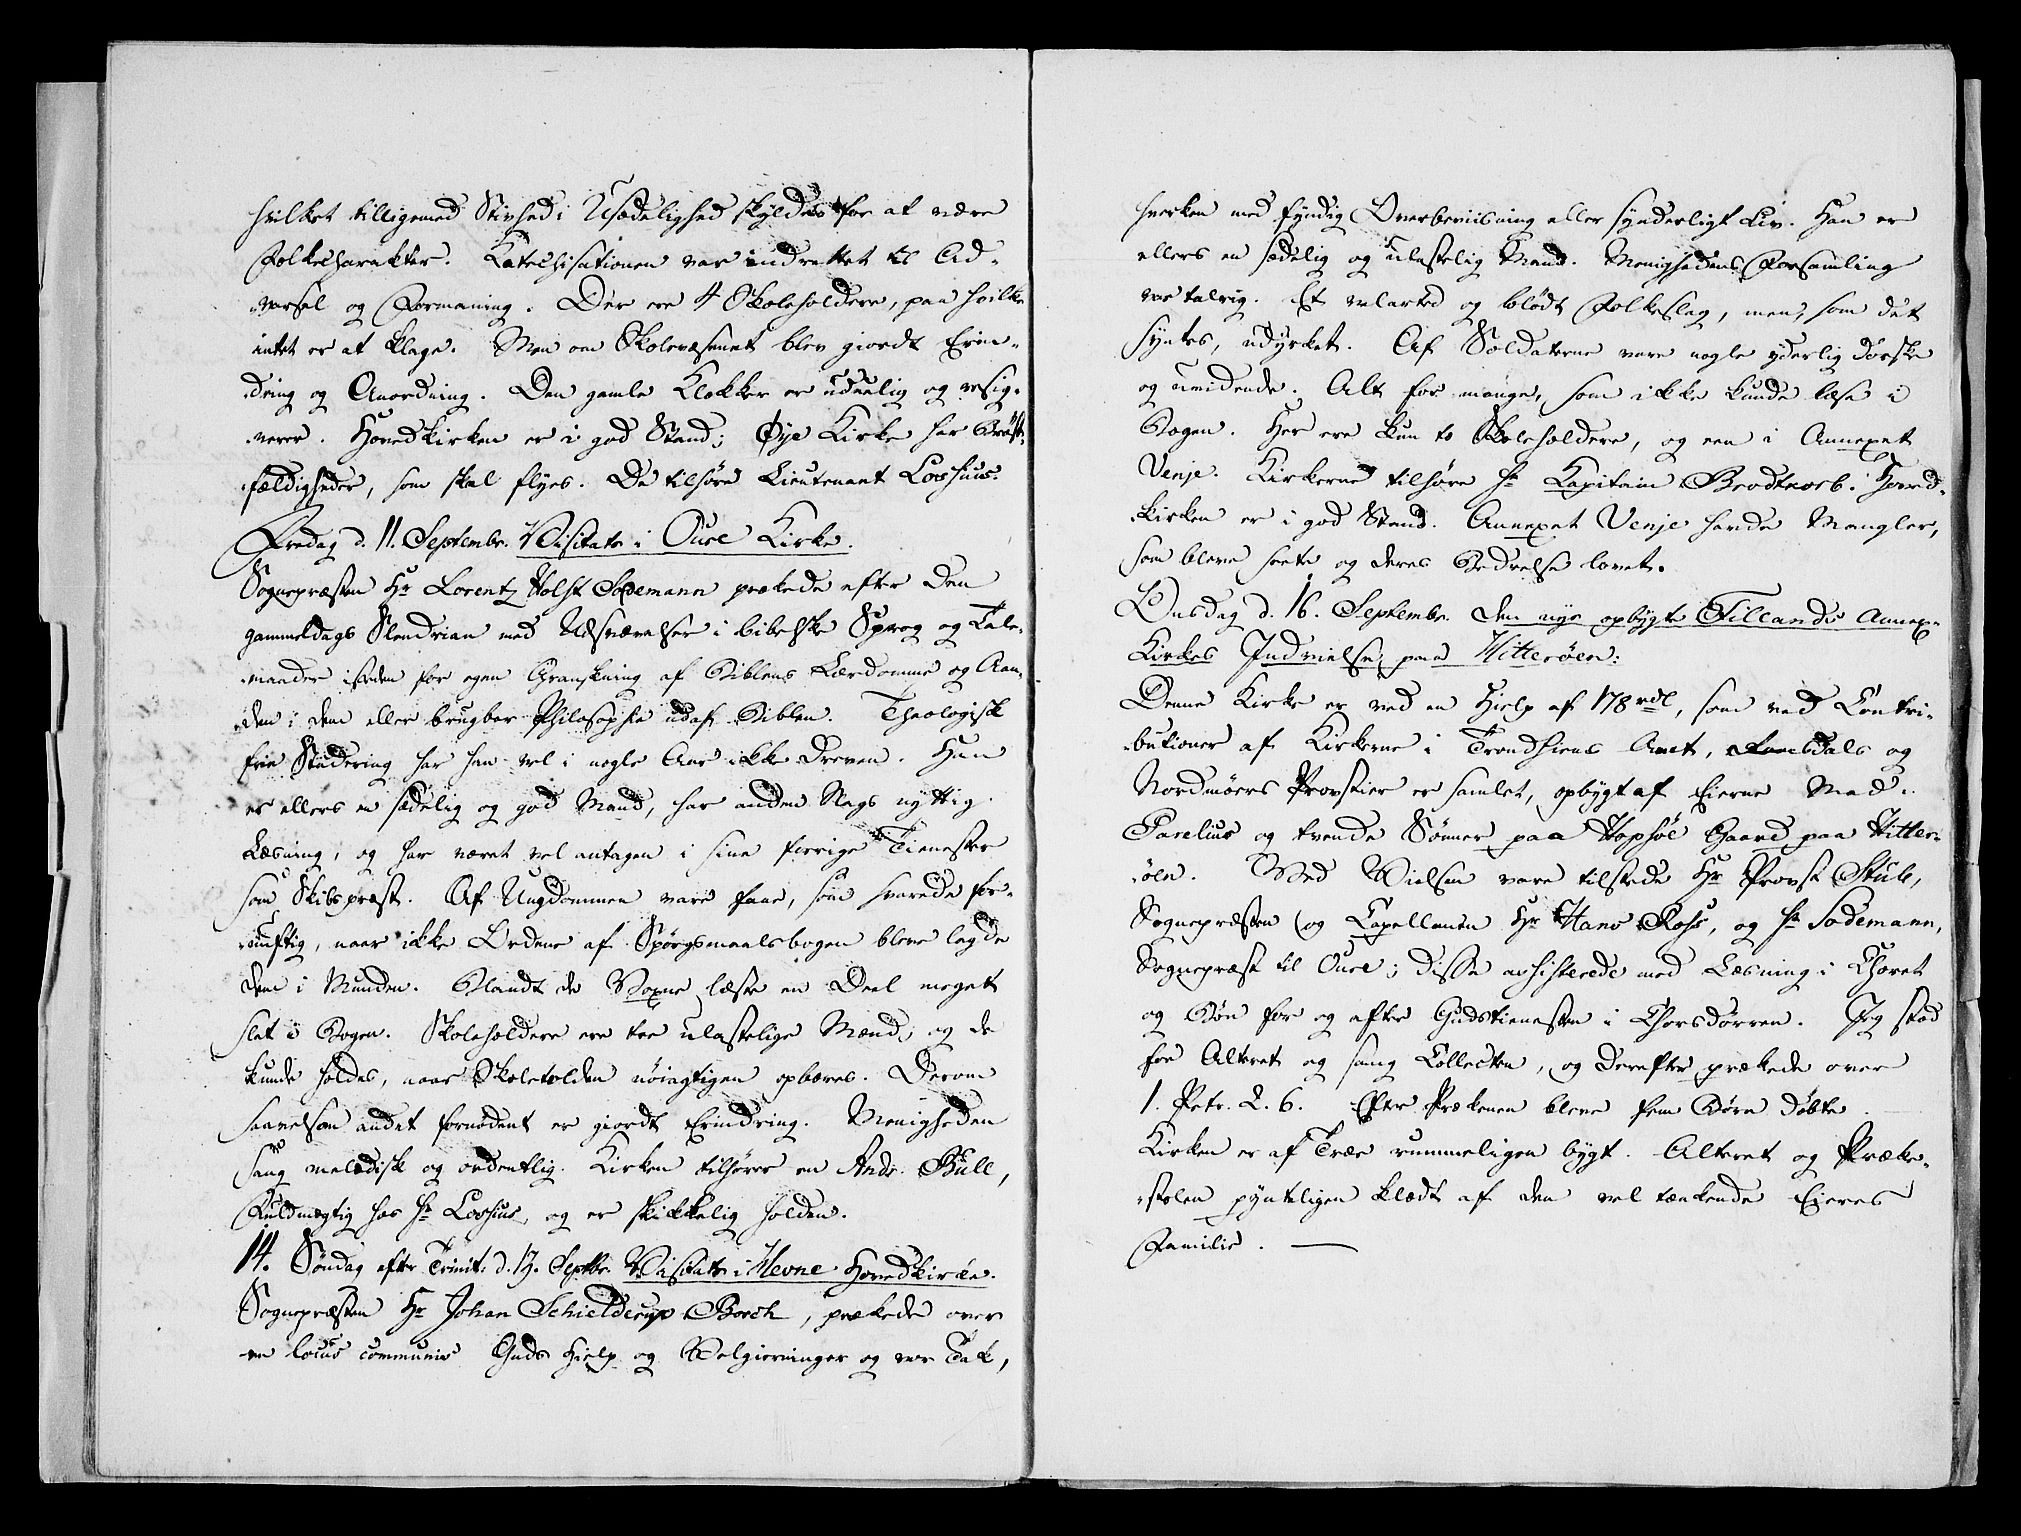 hvilket tilligemed Stivhed i Usædelighed skyldes for at være
Folkecharakter. Katechisationen var indrettet til Ad-
varsel og Formaning. Der ere 4 Skoleholdere, paa hvilke
intet er at klage. Men om Skolevæsenet blev giordt Erin-
dring og Anordning. Den gamle Klokker er uduelig og resig-
nerer. Hovedkirken er i god Stand; Øye Kirke har Brøst-
fældigheder, som skal flyes. De tilhøre Lieutenant Lossius.
Fredag d. 11. Septembr. Visitats i Oure Kirke.
Sognepræsten Hr Lorentz Holst Sodemann prækede efter den
gammeldags Slendrian med Udsvævelser i bibelske Sprog og Tale-
maader isteden for egen Granskning af Biblens Lærdomme og Aan-
den i dem eller brugbar Philosophie udaf Biblen. Theologisk
frie Studering har han vel i nogle Aar ikke dreven. Han
er ellers en sædelig og god Mand, har anden Slags nyttig
Læsning, og har været vel antagen i sine forrige Tienester
som Skibspræst. Af Ungdommen vare faae, som svarede for-
nuftig, naar ikke Ordene af Spørgsmaalsbogen bleve lagde
dem i Munden. Blandt de Voxne læste en Deel meget
slet i Bogen. Skoleholdere ere tre ulastelige Mænd; og de
kunde holdes, naar Skoletolden nöiagtigen opbæres. Derom
saavelsom andet fornødent er giordt Erindring. Menigheden
sang melodisk og ordentlig. Kirken tilhører en Andr. Bull,
Fuldmægtig hos Hr Lossius, og er skikkelig holden.
14. Søndag efter Trinit: d. 13. Septbr. Visitats i Hevne Hovedkirke.
Sognepræsten Hr Johan Schielderup Borch, prækede over
en locus communis Guds Hielp og Velgierninger og vor Tak,
hverken med fyndig Overbeviisning eller synderligt Liv. Han er
ellers en sædelig og ulastelig Mand. Menighedens Forsamling
var talrig. Et velartet og blödt Folkeslag, men, som det
syntes, udyrket. Af Soldaterne vare nogle yderlig dorske
og uvidende. Alt for mange, som ikke kunde læse i
Bogen. Her ere kun to Skoleholdere, og een i Annexet
Venje. Kirkerne tilhøre Hr Kapitain Brodtkorb. Hoved-
kirken er i god Stand. Annexet Venje havde Mangler,
som bleve seete og deres Bedrelse lovet.
Onsdag d. 16. Septembr. den nye opbygte Fillands Annex-
Kirkes Indvielse paa Hitterøen:
Denne Kirke er ved en Hielp af 178 rdl, som ved Contri-
butioner af Kirkerne i Trondhiems Amt, Romsdals og
Nordmöers Provstier er samlet, opbygt af Eierne Mad.
Parelius og tvende Sønner paa Hopsiöe Gaard paa Hitter-
øen. Ved Vielsen vare tilstede Hr Provst Stub,
Sognepræsten og Capellanen Hr Hans Rohs, og Hr Sodemann,
Sognepræst til Oure; disse assisterede med Læsning i Choret
og Bön for og efter Gudstienesten i Chorsdørren. Jeg stod
for Alteret og sang Collecten, og derefter prækede over
1. Petr. 2. 6. Efter Prækenen bleve fem Børn døbte.
Kirken er af Træe rummeligen bygt. Alteret og Præke-
stolen pynteligen klædt af den vel tænkende Eieres
Familie.